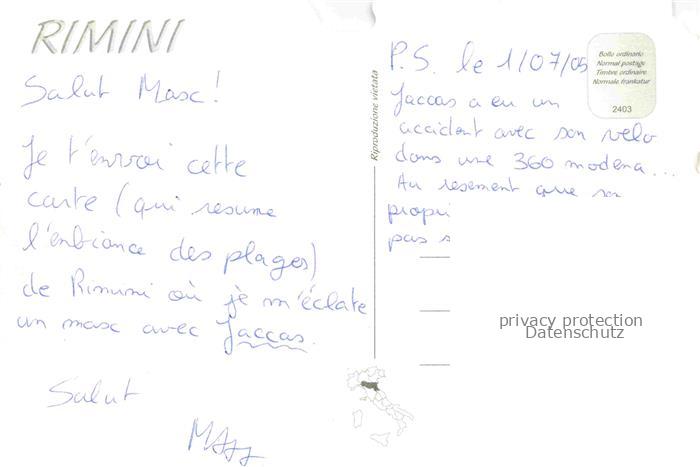 RIMINI
Salut Masc!
Je t'envoi cette
carte (qui resume
l'enbiance des plages)
de Rimini où je m'éclate
un masc avec Jaccas.
Salut
Riproduzione vietata
P.S. le 1/07/05
Jaccas a eu un
accident avec son velo
dans une 360 modena...
Au resement que sa
propri
pas s
Bollo ordinario
Normal postage
Timbre ordinaire
Normale frankatur
2403
privacy protection
Datenschutz